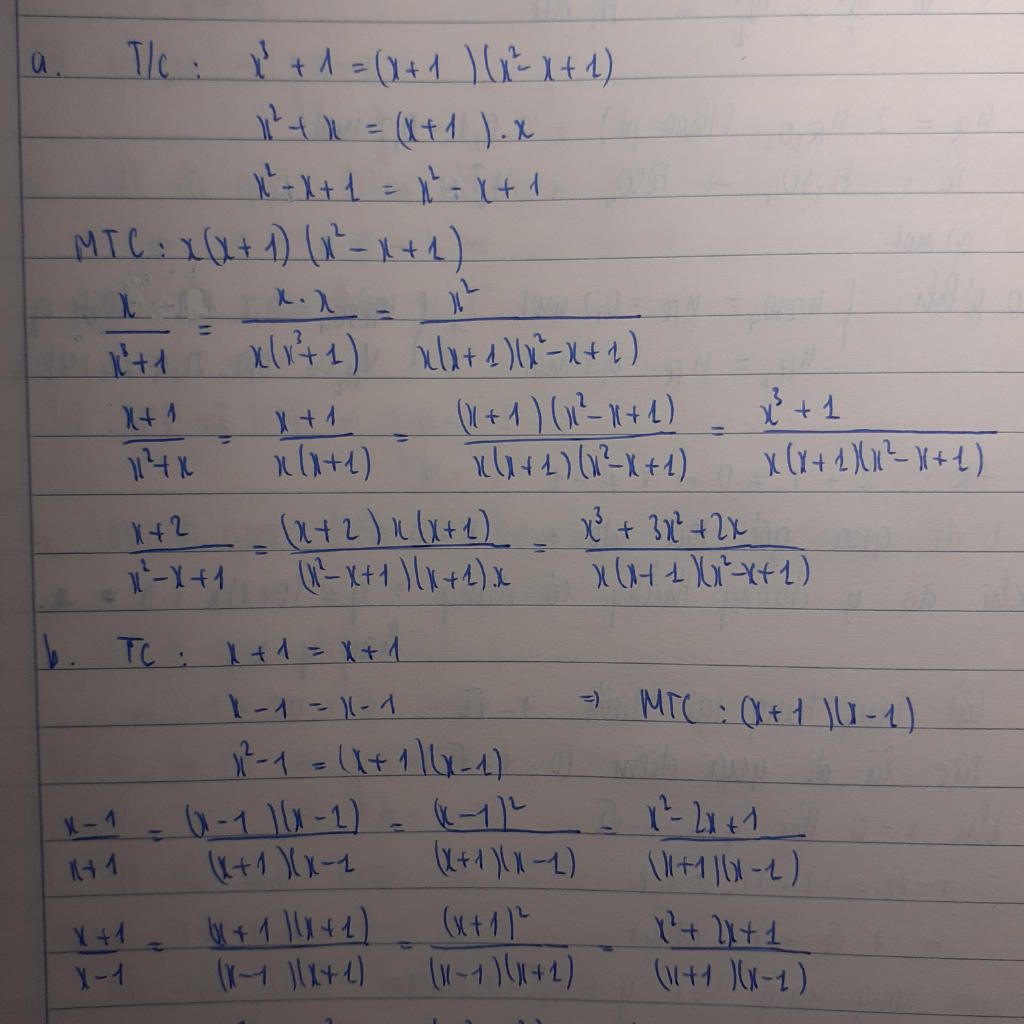 a. T/c : x³ + 1 = (x+1)(x² - x + 1)
x² + x = (x+1).x
x² - x + 1 = x² - x + 1
MTC : x(x+1)(x² - x + 1)
x/(x³+1) = x.x/(x(x³+1)) = x²/(x(x+1)(x²-x+1))
(x+1)/(x²+x) = (x+1)/(x(x+1)) = (x+1)(x²-x+1)/(x(x+1)(x²-x+1)) = (x³+1)/(x(x+1)(x²-x+1))
(x+2)/(x²-x+1) = (x+2)x(x+1)/((x²-x+1)(x+1).x) = (x³ + 3x² + 2x)/(x(x+1)(x²-x+1))
b. TC : x + 1 = x + 1
x - 1 = x - 1 => MTC : (x+1)(x-1)
x² - 1 = (x+1)(x-1)
(x-1)/(x+1) = (x-1)(x-1)/((x+1)(x-1) = (x-1)²/((x+1)(x-1)) = (x² - 2x + 1)/((x+1)(x-1))
(x+1)/(x-1) = (x+1)(x+1)/((x-1)(x+1)) = (x+1)²/((x-1)(x+1)) = (x² + 2x + 1)/((x+1)(x-1))